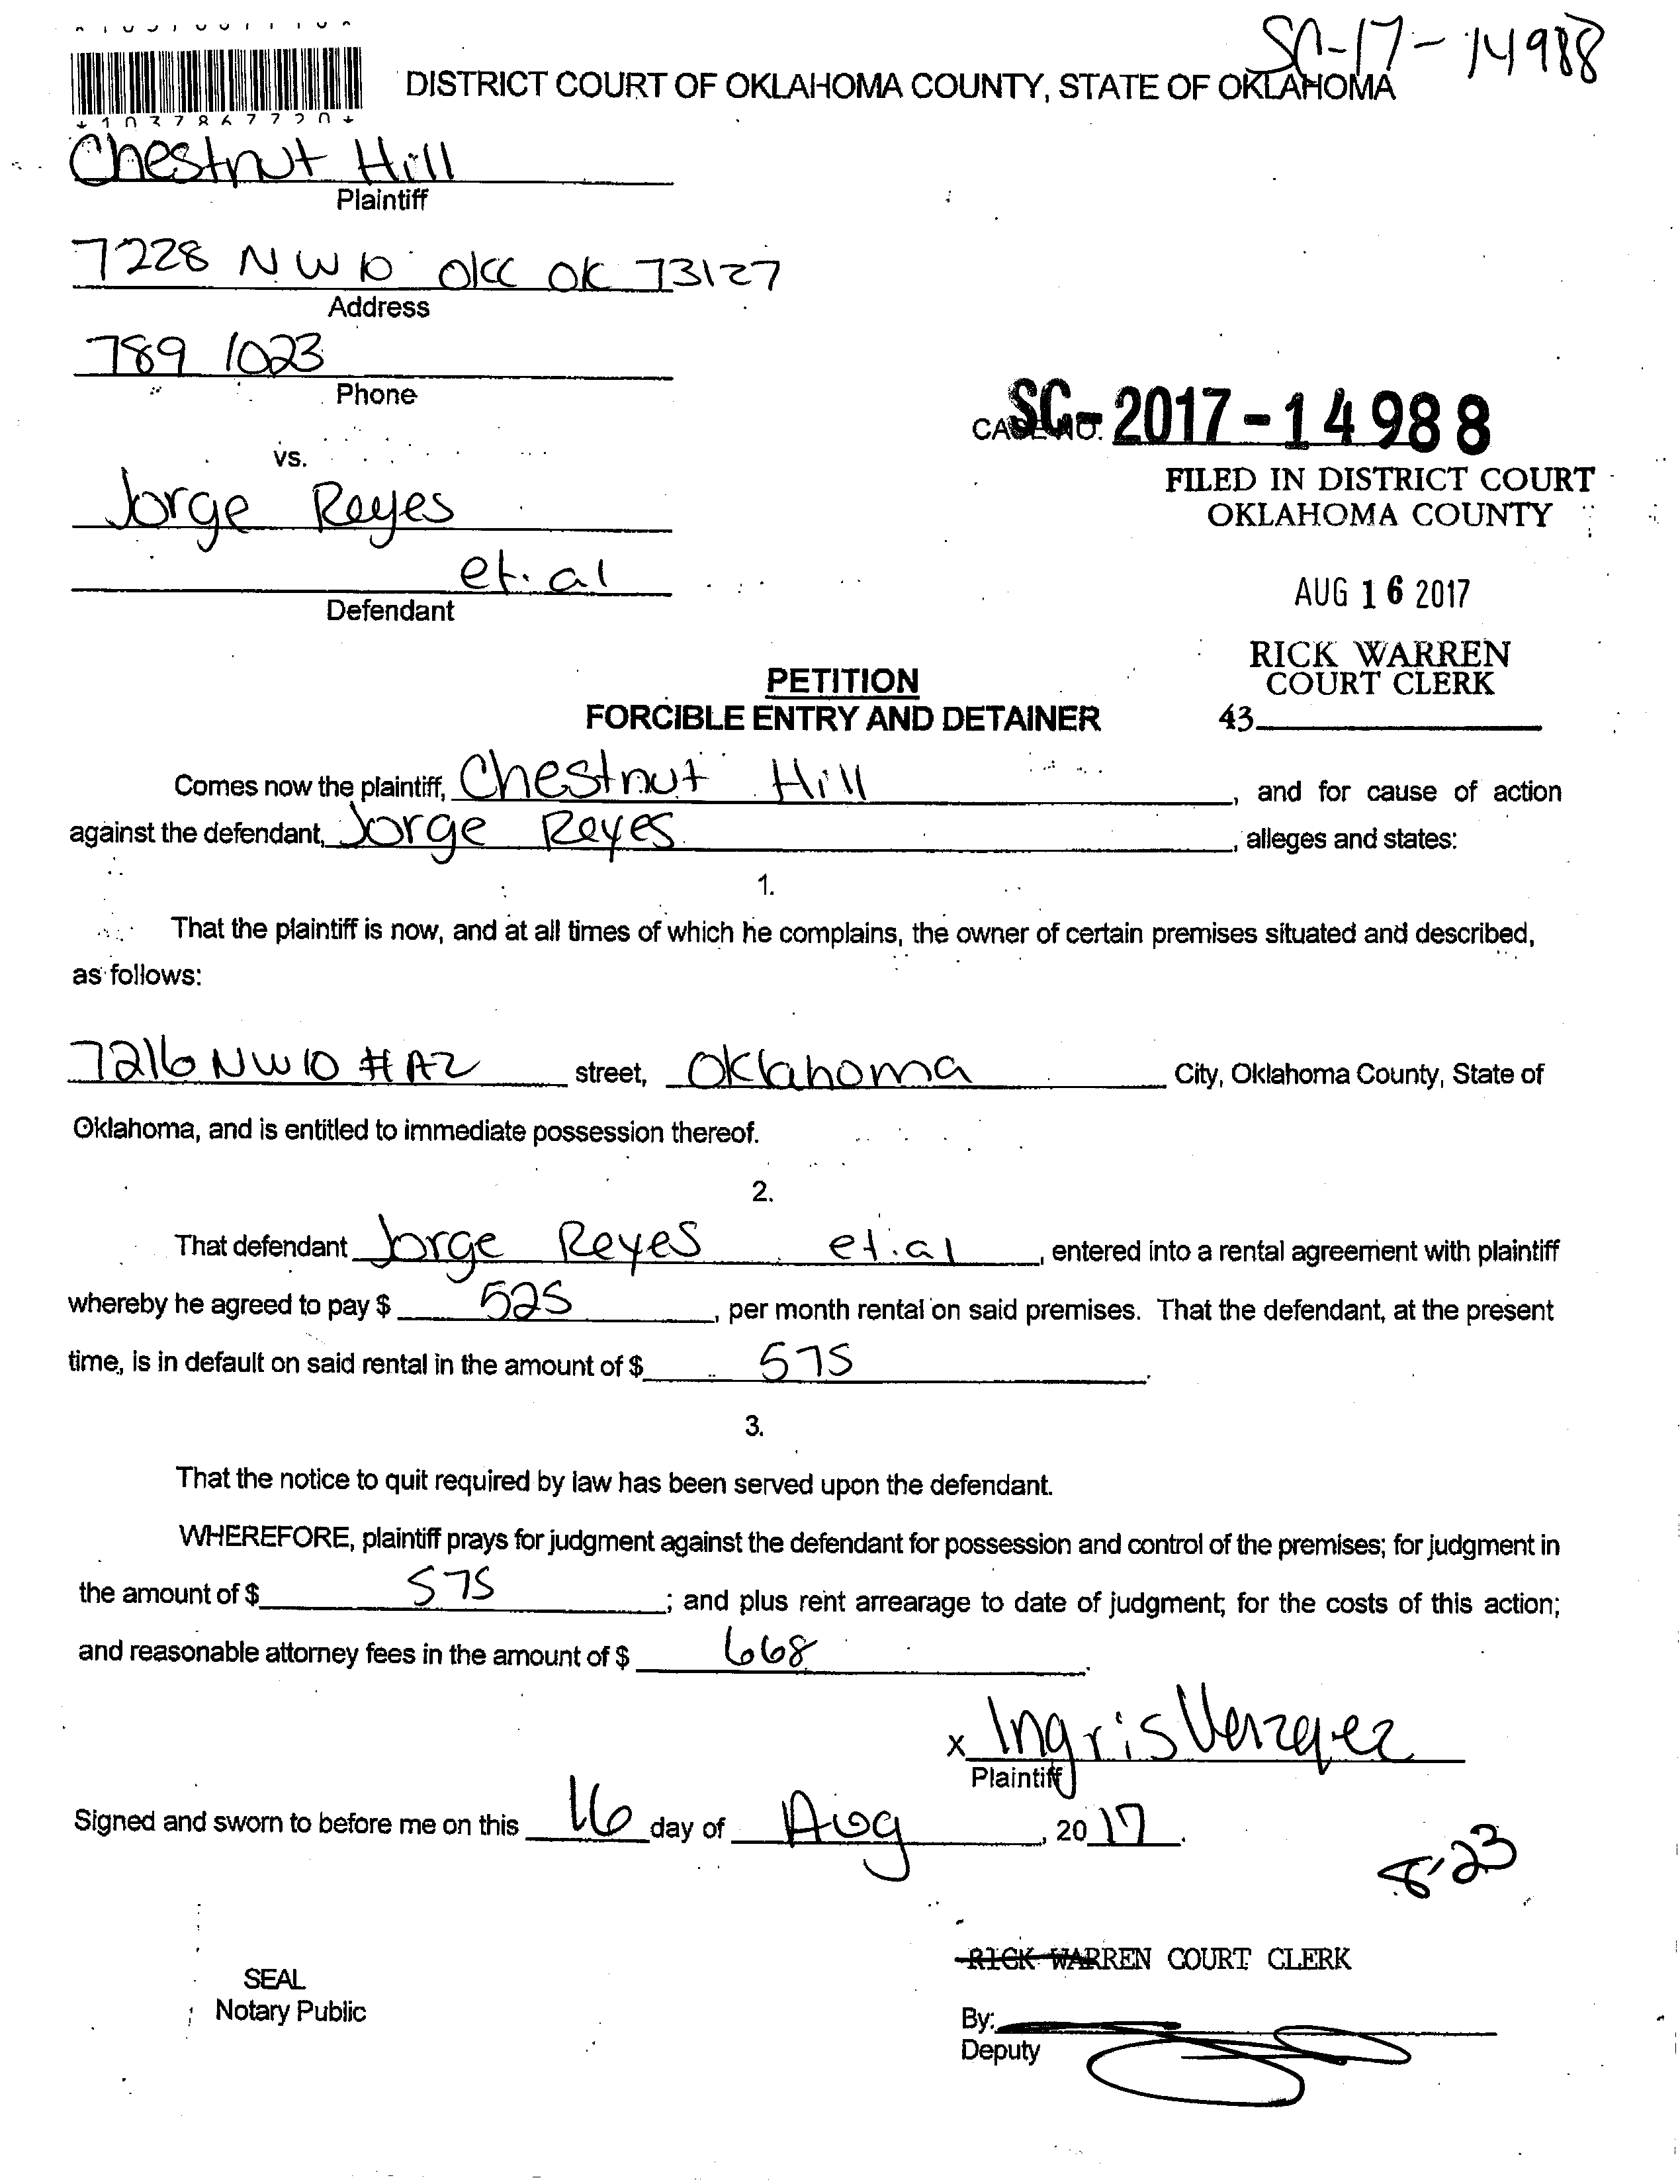 SC-17-14988
DISTRICT COURT OF OKLAHOMA COUNTY, STATE OF OKLAHOMA
*1037867720*
Chestnut Hill
Plaintiff
7228 NW 10 OKC OK 73127
Address
789 1023
Phone
CASE NO. SC-2017-14988
vs.
FILED IN DISTRICT COURT
OKLAHOMA COUNTY
Jorge Reyes
et. al
Defendant
AUG 16 2017
RICK WARREN
COURT CLERK
43
PETITION
FORCIBLE ENTRY AND DETAINER
Comes now the plaintiff, Chestnut Hill, and for cause of action
against the defendant, Jorge Reyes, alleges and states:
1.
That the plaintiff is now, and at all times of which he complains, the owner of certain premises situated and described,
as follows:
7216 NW 10 #A2 street, Oklahoma City, Oklahoma County, State of
Oklahoma, and is entitled to immediate possession thereof.
2.
That defendant Jorge Reyes et. al, entered into a rental agreement with plaintiff
whereby he agreed to pay $ 525, per month rental on said premises. That the defendant, at the present
time, is in default on said rental in the amount of $ 575.
3.
That the notice to quit required by law has been served upon the defendant.
WHEREFORE, plaintiff prays for judgment against the defendant for possession and control of the premises; for judgment in
the amount of $ 575; and plus rent arrearage to date of judgment; for the costs of this action;
and reasonable attorney fees in the amount of $ 668.
x Ingris Venzquez
Plaintiff
Signed and sworn to before me on this 16 day of Aug, 2017.
8-23
RICK WARREN COURT CLERK
SEAL
Notary Public
By:
Deputy